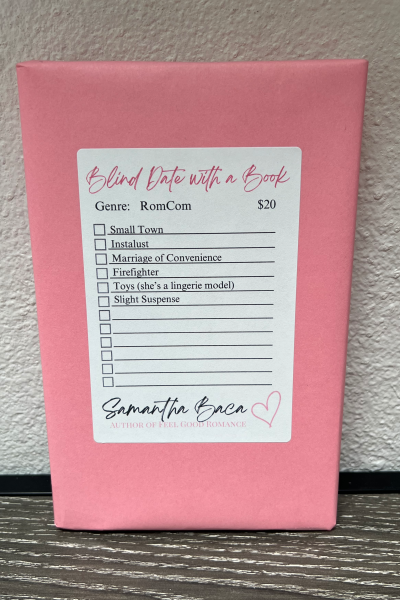 Blind Date with a Book
Genre: RomCom $20
Small Town
Instalust
Marriage of Convenience
Firefighter
Toys (she's a lingerie model)
Slight Suspense
Samantha Baca
AUTHOR OF FEEL GOOD ROMANCE